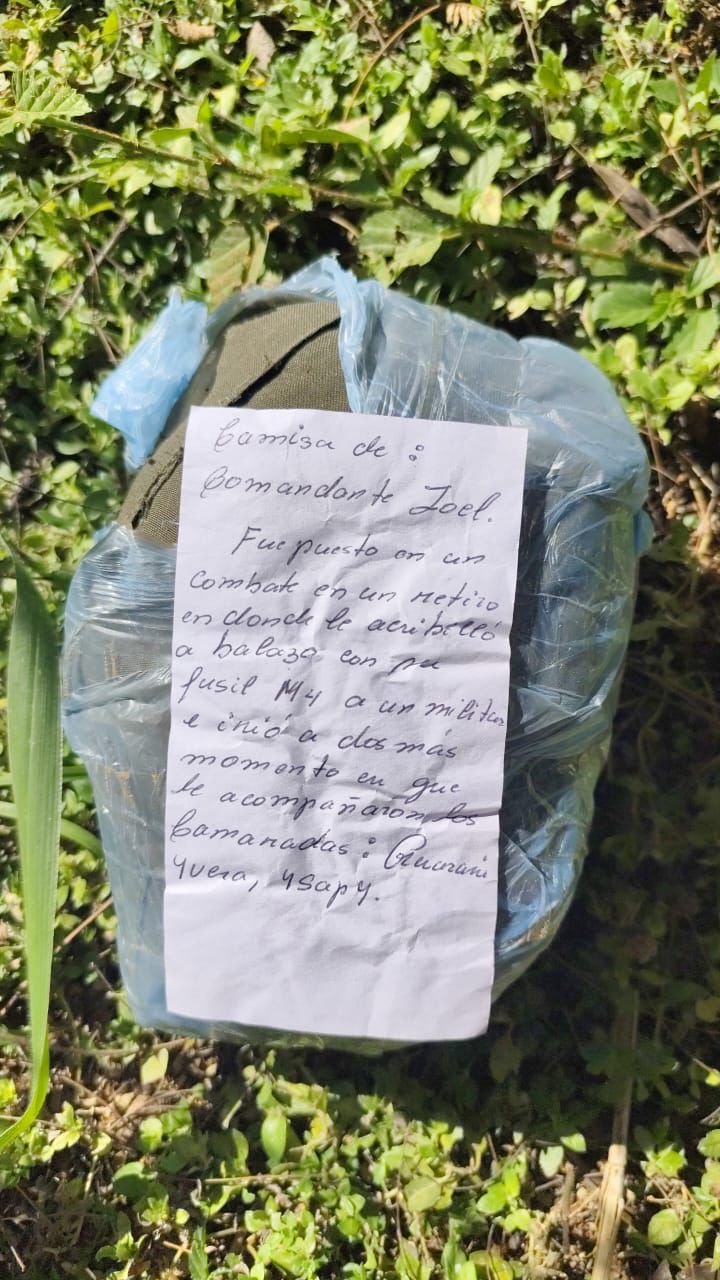 Camisa de :
Comandante Joel.
Fue puesto en un
combate en un retiro
en donde le acribilló
a balazo con su
fusil M4 a un militar
e irió a dos más
momento en que
le acompañaron los
Camaradas :
Yvera, Ysapy.